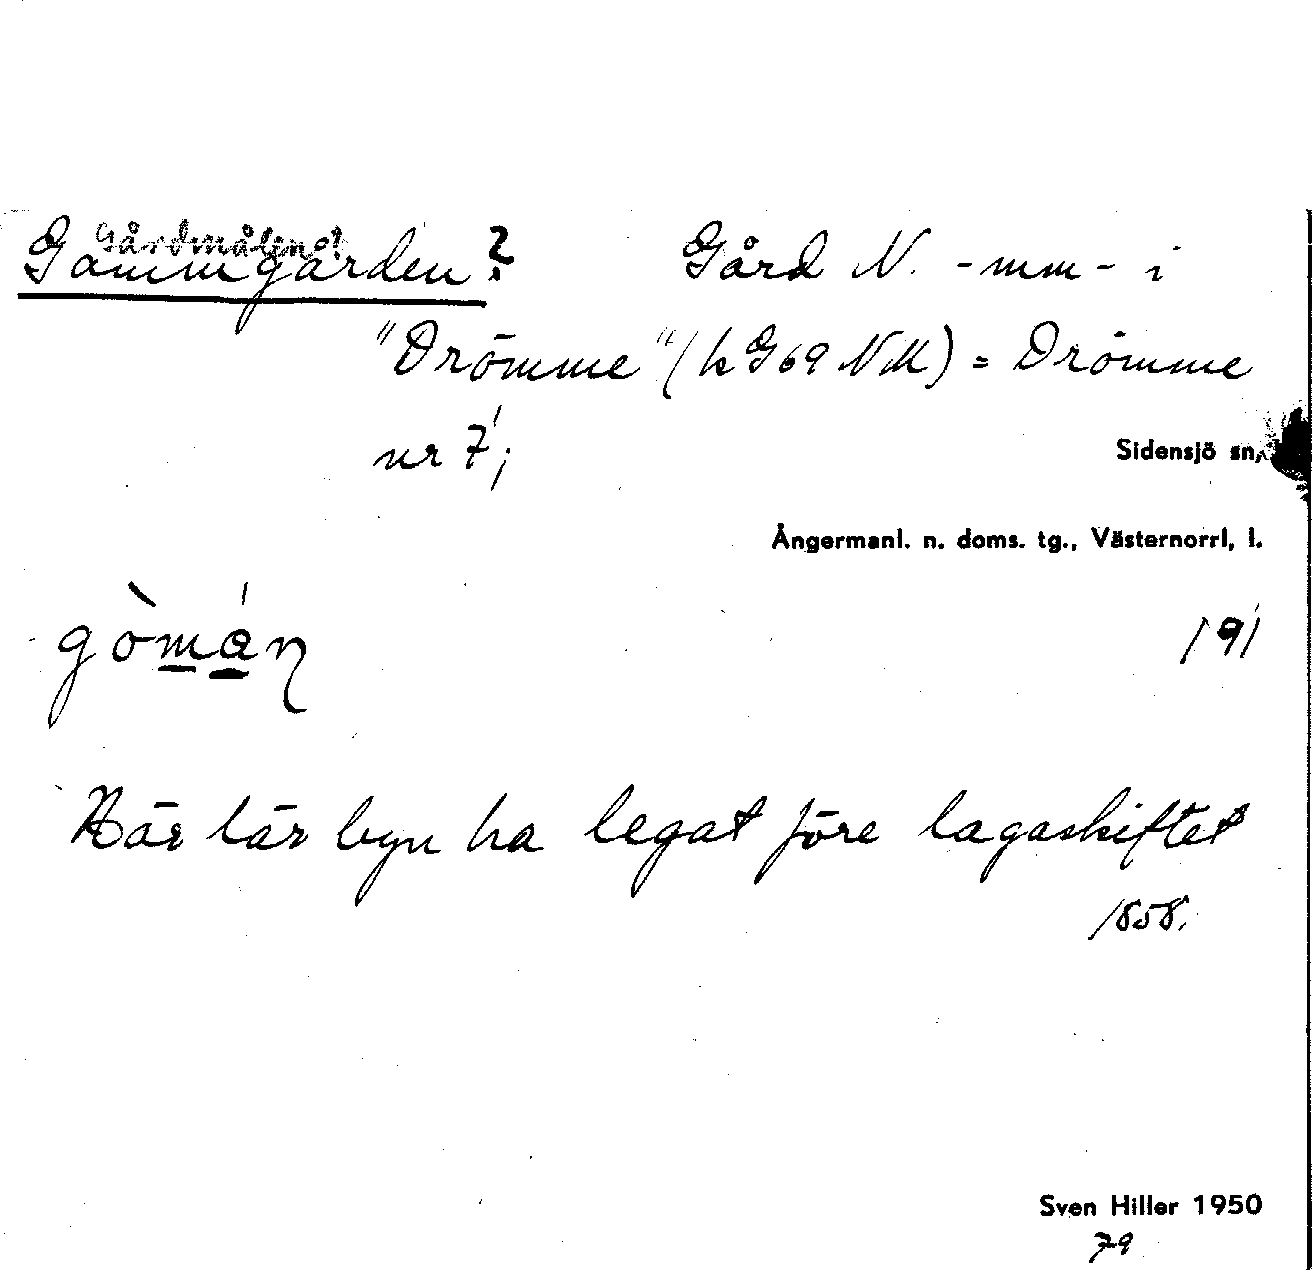 Gårdmålen?
Gammgården? Gård N. -mm- i
"Drömme" (kG69 NM) = Drömme
nr 7¹;
Sidensjö sn,
Ångermanl. n. doms. tg., Västernorrl, l.
gòmán
191
Här lär byn ha legat före lagaskiftet
1858.
Sven Hiller 1950
79